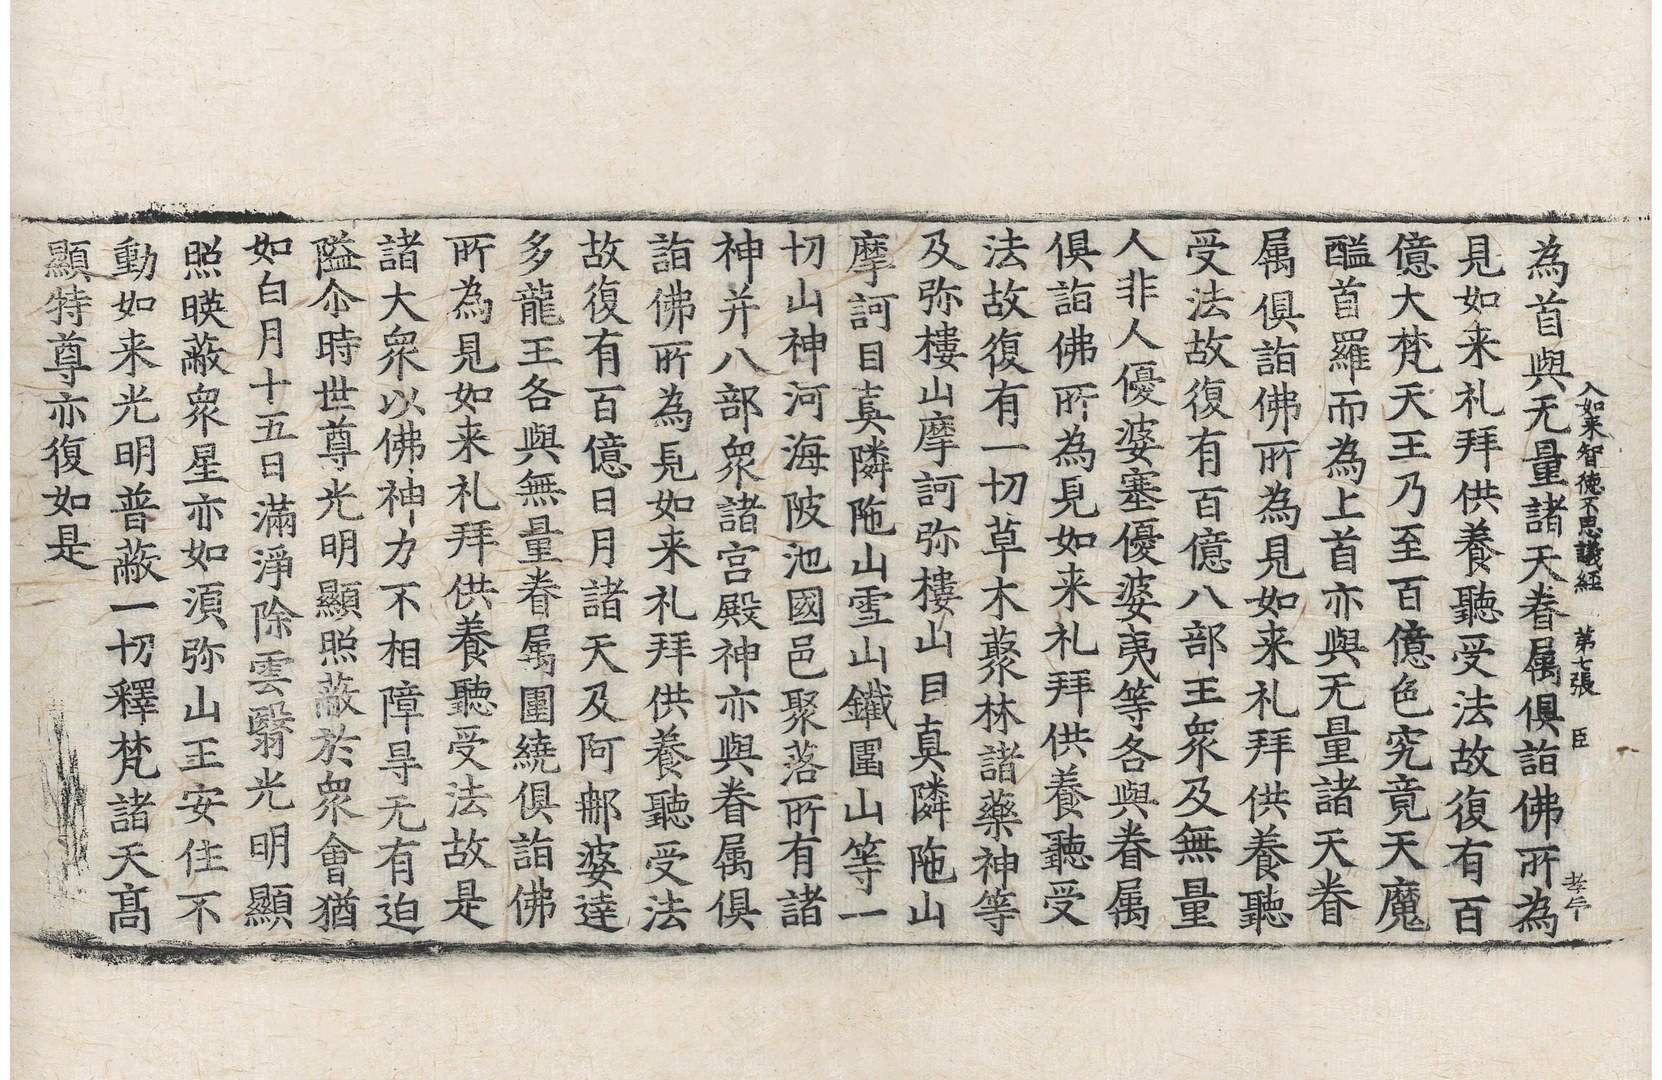 入如来智德不思議經　第七張　臣
孝年
為首與无量諸天眷属俱詣佛所為
見如来礼拜供養聽受法故復有百
億大梵天王乃至百億色究竟天魔
醯首羅而為上首亦與无量諸天眷
属俱詣佛所為見如来礼拜供養聽
受法故復有百億八部王衆及無量
人非人優婆塞優婆夷等各與眷属
俱詣佛所為見如来礼拜供養聽受
法故復有一切草木藂林諸藥神等
及弥樓山摩訶弥樓山目真隣陁山
摩訶目真隣陁山雪山鐵圍山等一
切山神河海陂池國邑聚落所有諸
神并八部衆諸宫殿神亦與眷属俱
詣佛所為見如来礼拜供養聽受法
故復有百億日月諸天及阿郍婆達
多龍王各與無量眷属圍繞俱詣佛
所為見如来礼拜供養聽受法故是
諸大衆以佛神力不相障㝵无有迫
隘尒時世尊光明顯照蔽於衆會猶
如白月十五日滿淨除雲翳光明顯
照暎蔽衆星亦如湏弥山王安住不
動如来光明普蔽一切釋梵諸天髙
顯特尊亦復如是